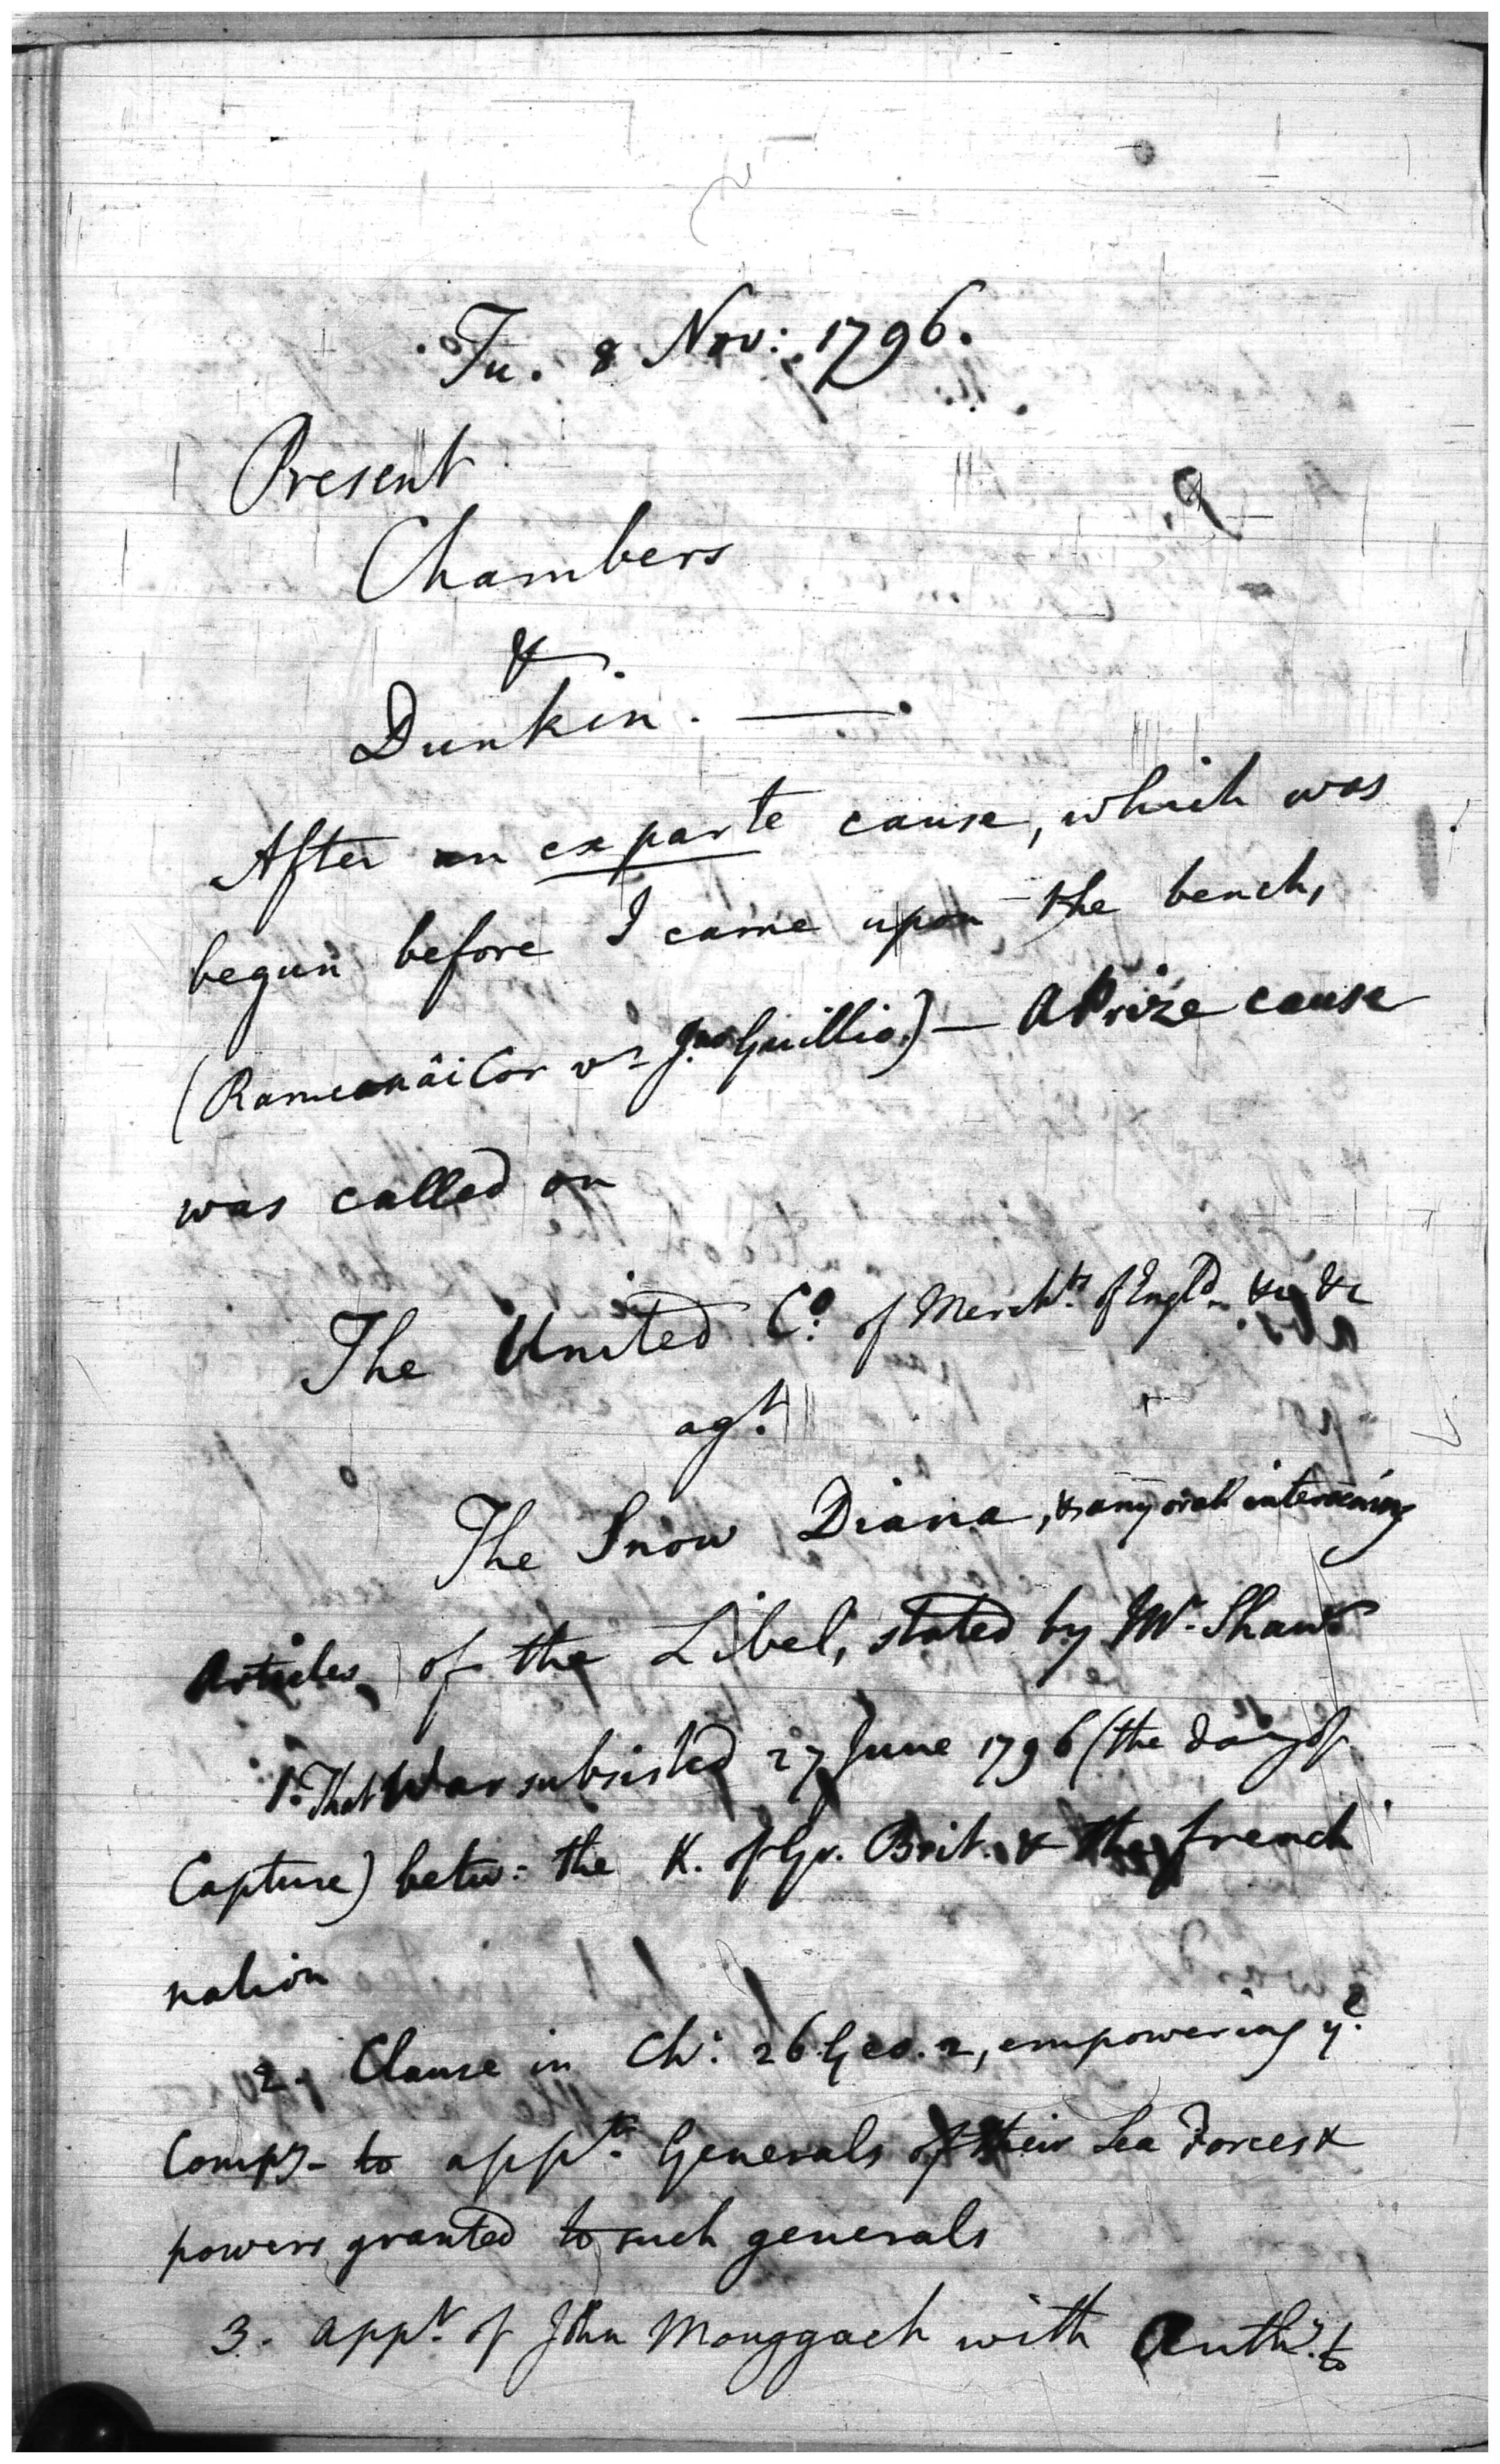 Tu. 8 Nov: 1796.
Present
Chambers
&
Dunkin. —
After an ex parte cause, which was
begun before I came upon the bench,
vs Jno Guillio.) — A Prize cause
was called on
The United Co. of Merchts. of Engld. &c &c
agt.
The Snow Diana, & any intervening
Articles of the Libel, stated by Mr. Shaw
1. That War subsisted 27 June 1796 (the day of
Capture) betw: the K. of Gr. Brit. & the french
nation
2. Clause in Ch: 26 Geo. 2, empowering ye.
Compy. to appt. Generals of their Sea Forces &
powers granted to such generals
3. appt. of John Mouggach with Authy. to